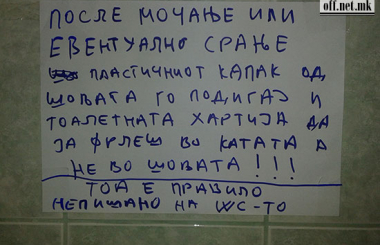 off.net.mk
ПОСЛЕ МОЧАЊЕ ИЛИ
ЕВЕНТУАЛНО СРАЊЕ
ПЛАСТИЧНИОТ КАПАК ОД
ШОЉАТА ГО ПОДИГАЈ И
ТОАЛЕТНАТА ХАРТИЈА ДА
ЈА ФРЛЕШ ВО КАТАТА А
НЕ ВО ШОЉАТА!!!
ТОА Е ПРАВИЛО
НЕПИШАНО НА WC-ТО